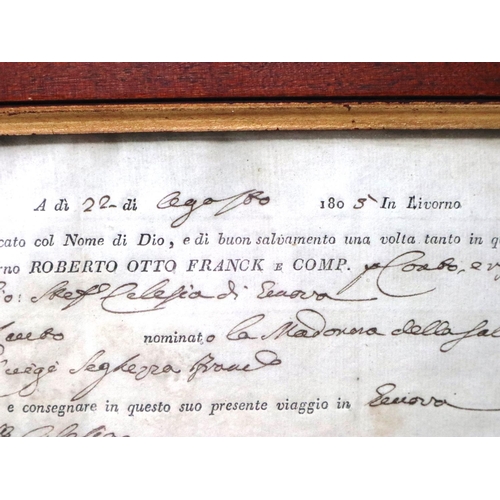 A dì 22 di Agosto 1805 In Livorno
cato col Nome di Dio, e di buon salvamento una volta tanto in qu
rno ROBERTO OTTO FRANCK E COMP. p Conto, e
Celesia di Genova
nominato la Madonna della Sal
e consegnare in questo suo presente viaggio in Genova